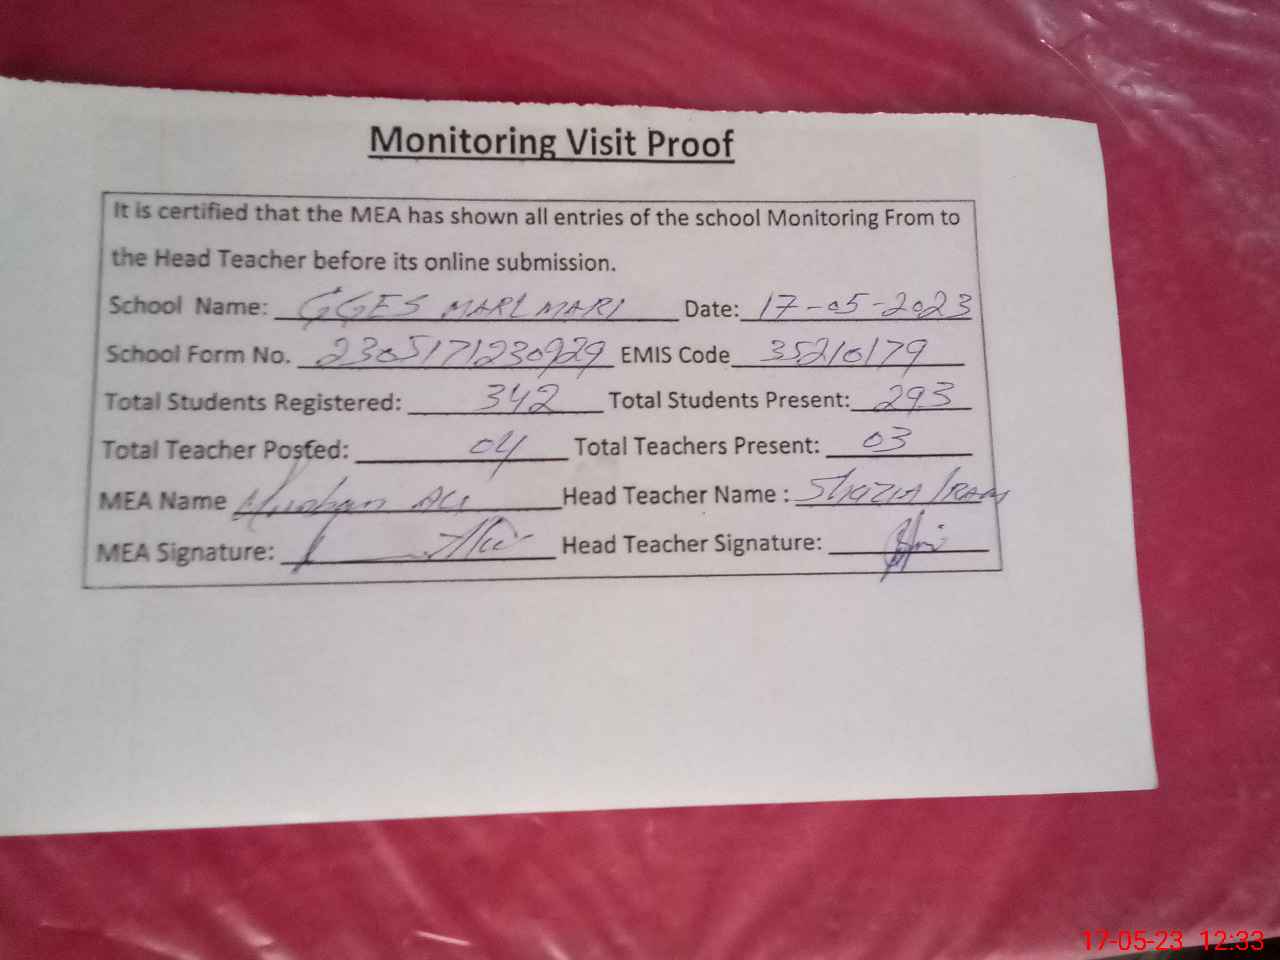 Monitoring Visit Proof
It is certified that the MEA has shown all entries of the school Monitoring From to
the Head Teacher before its online submission.
School Name: GGES MARI MARI Date: 17-05-2023
School Form No. 2305171230929 EMIS Code 35210179
Total Students Registered: 342 Total Students Present: 293
Total Teacher Posted: 04 Total Teachers Present: 03
MEA Name ALI Head Teacher Name : SHAZIA IRAM
MEA Signature: Head Teacher Signature:
17-05-23 12:33